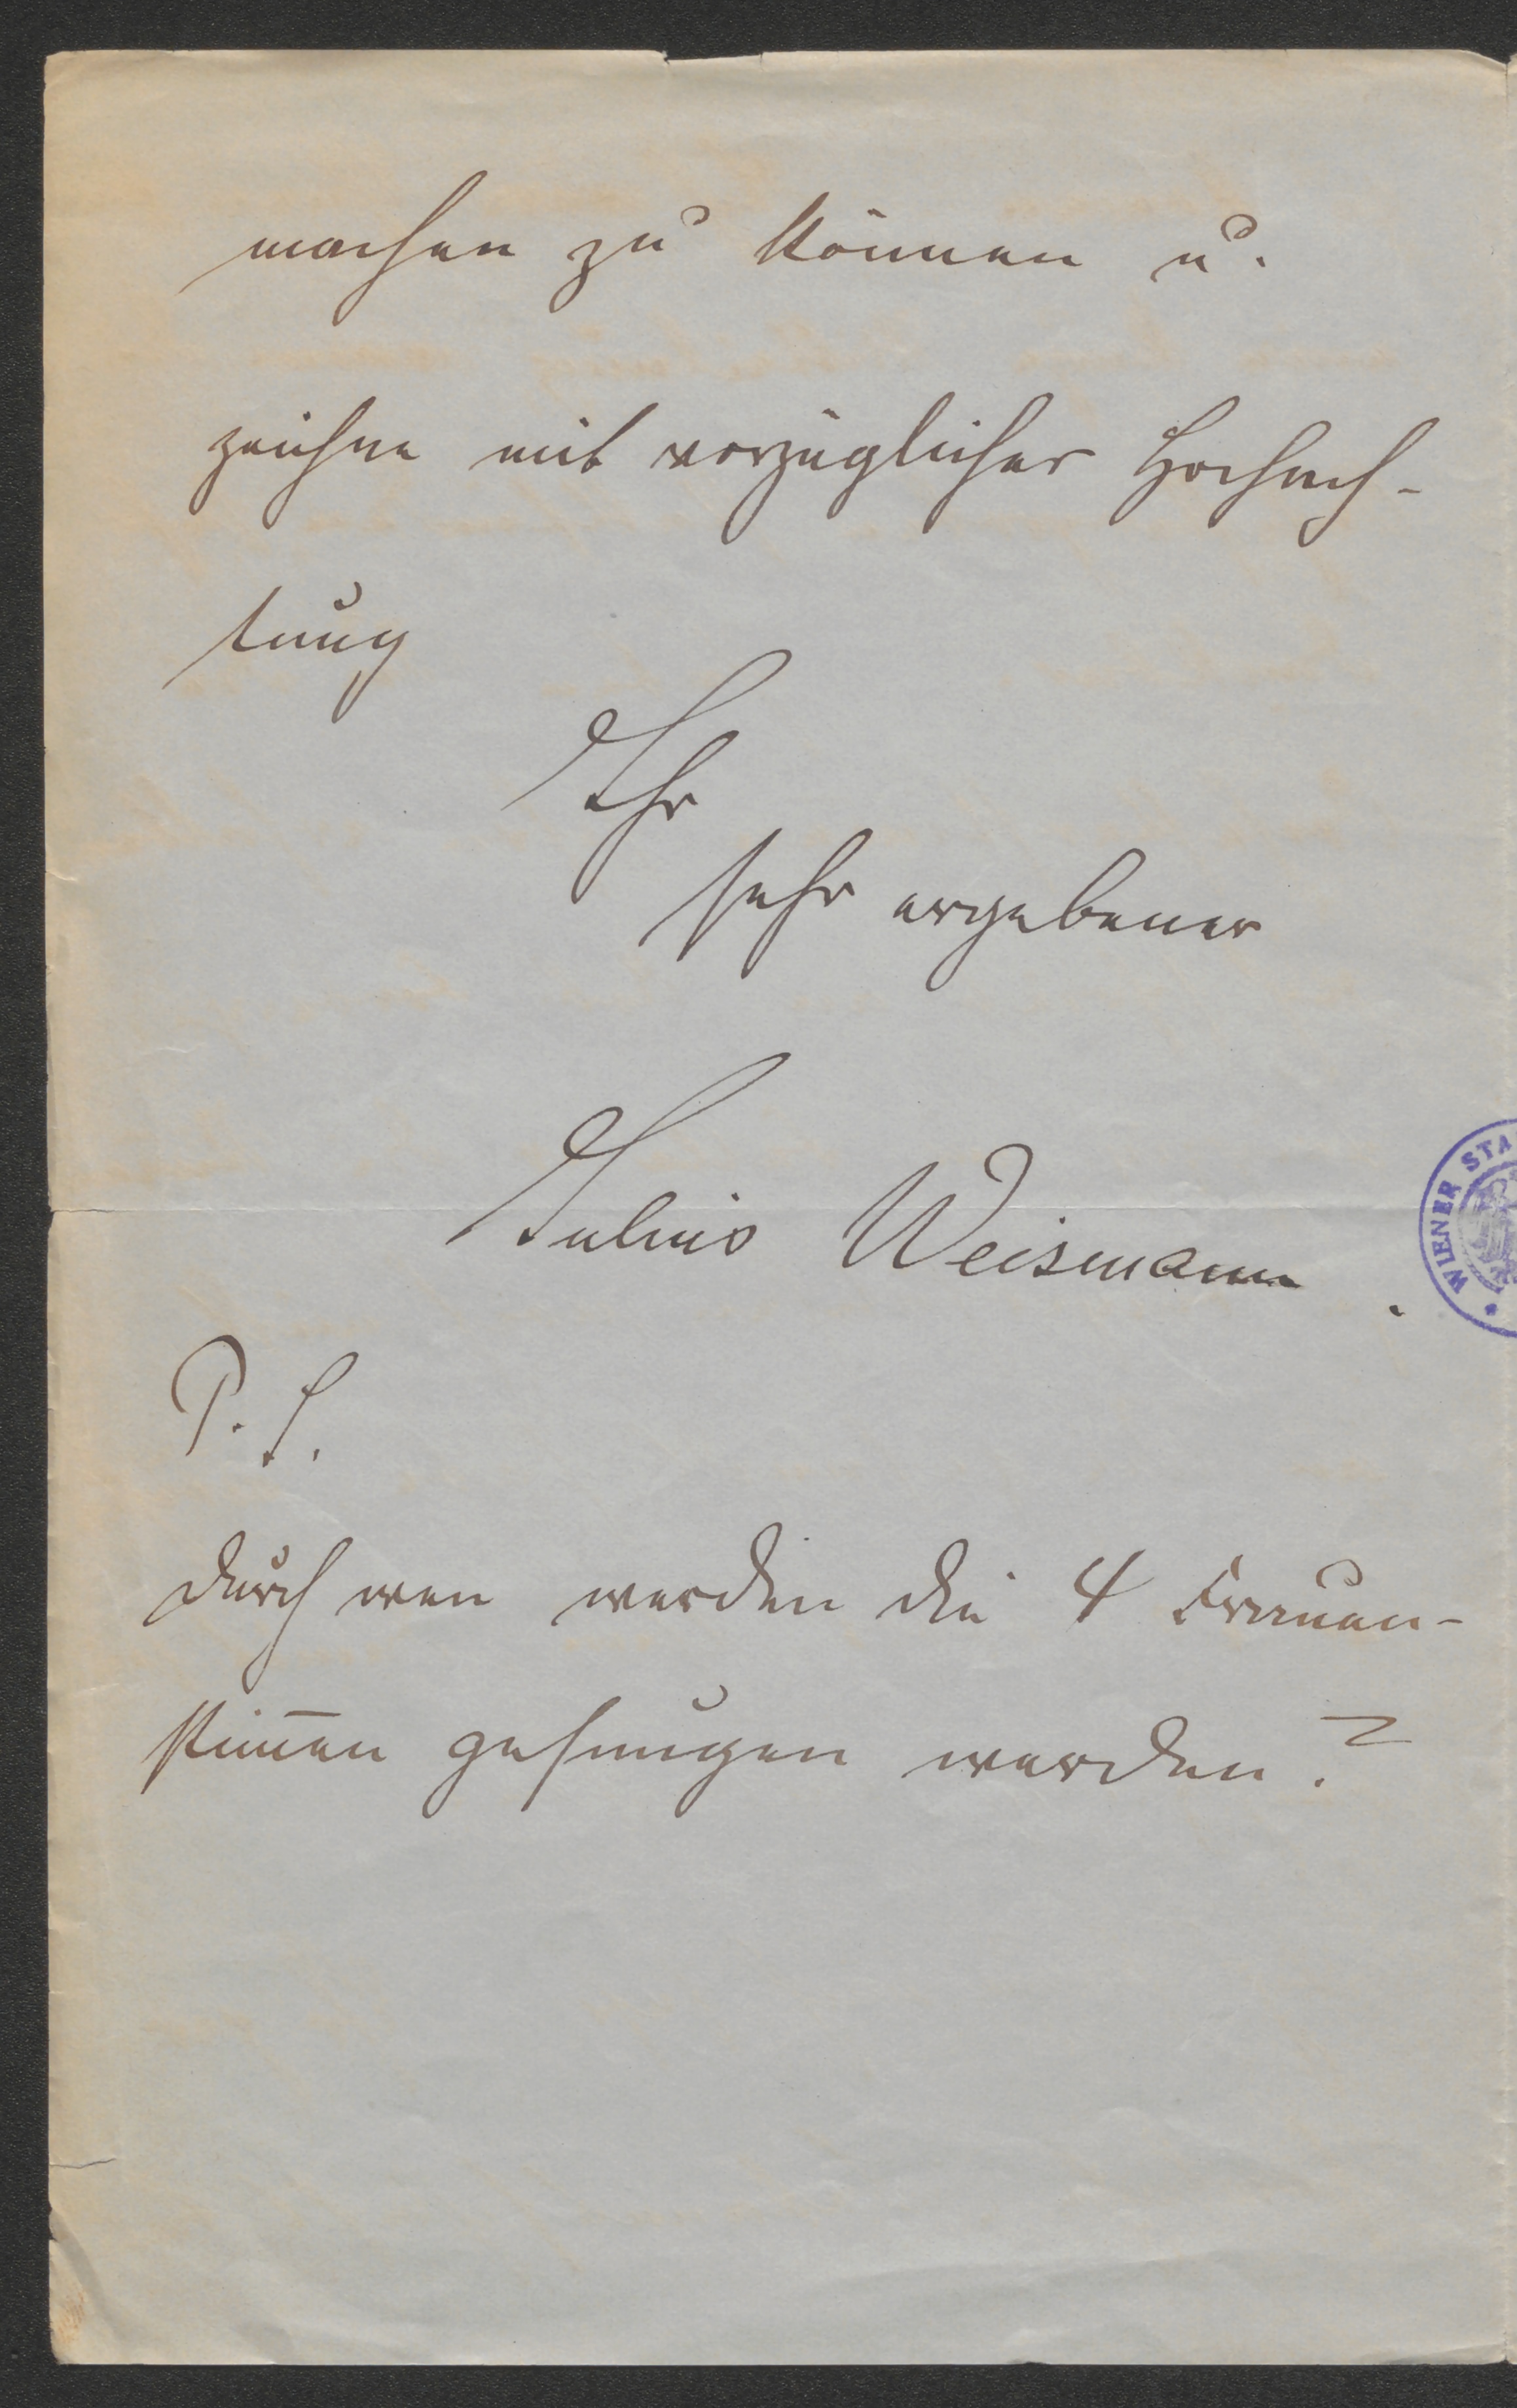 machen zu können u.
zeichne mit vorzüglicher Hochach-
tung
Ihr
sehr ergebener
Julius Weismann.
WIENER STA
P. S.
Durch wen werden die 4 Frauen-
stim̄en gesungen werden?